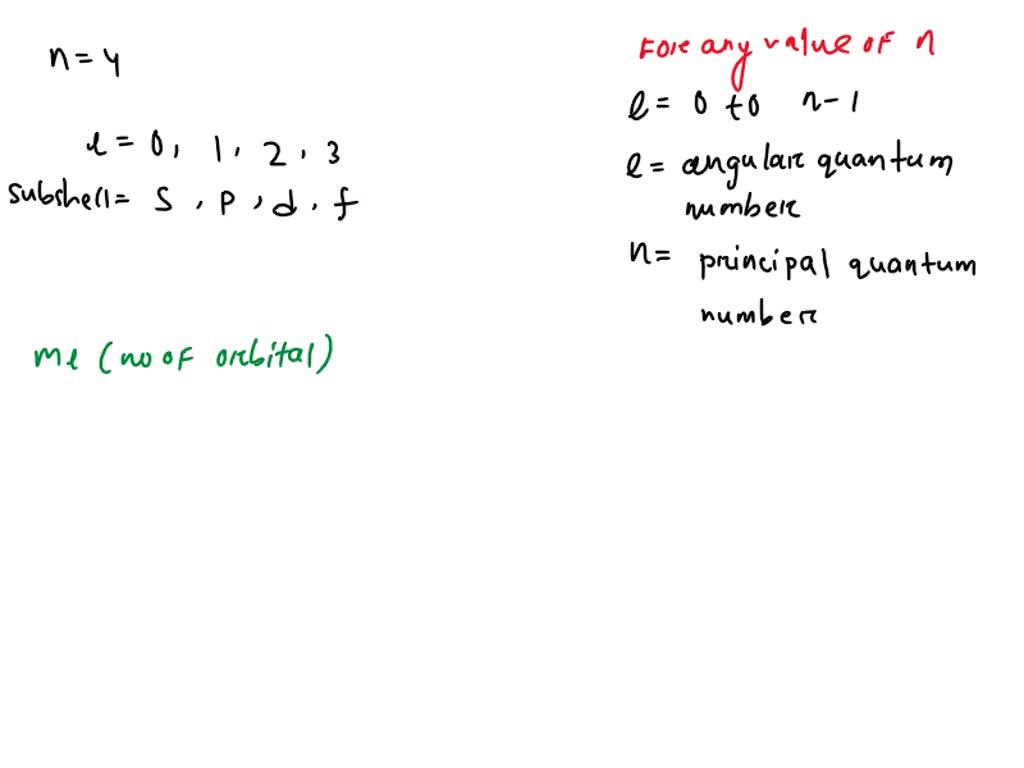 n = 4
l = 0, 1, 2, 3
Subshell = S, P, d, f
ml (no of orbital)
For any value of n
l = 0 to n-1
l = angular quantum
number
n = principal quantum
number